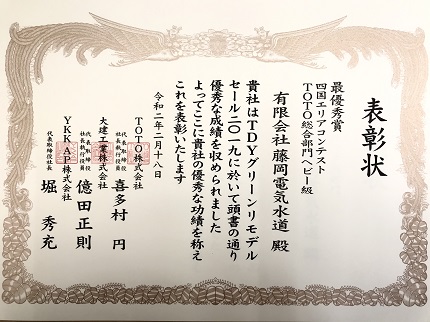 表彰状
最優秀賞
四国エリアコンテスト
TOTO総合部門ヘビー級
有限会社藤岡電気水道 殿
貴社はTDYグリーンリモデル
セール二〇一九に於いて頭書の通り
優秀な成績を収められました
よってここに貴社の優秀な功績を称え
これを表彰いたします
令和二年二月十八日
TOTO株式会社
代表取締役
社長執行役員
喜多村 円
大建工業株式会社
代表取締役
社長執行役員
億田正則
YKK AP株式会社
代表取締役社長
堀 秀充